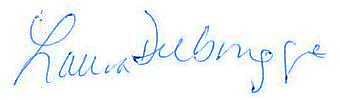 Laura Delbrugge